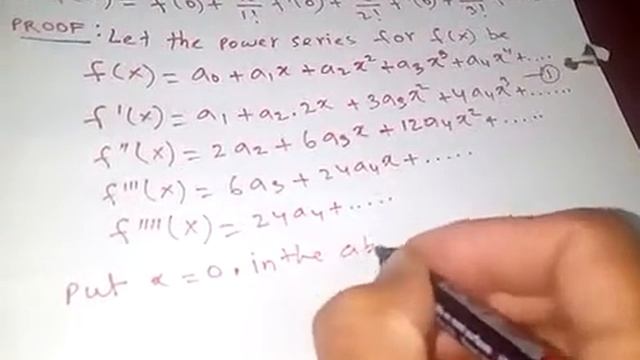 ) = f(0) + x/1! f'(0) + x²/2! f''(0) + x³/3!
PROOF : Let the power series for f(x) be
f(x) = a₀ + a₁x + a₂x² + a₃x³ + a₄x⁴ + ....
f'(x) = a₁ + a₂.2x + 3a₃x² + 4a₄x³ + ...... ①
f''(x) = 2a₂ + 6a₃x + 12a₄x² + .....
f'''(x) = 6a₃ + 24a₄x + .....
f''''(x) = 24a₄ + .....
Put x = 0, in the ab